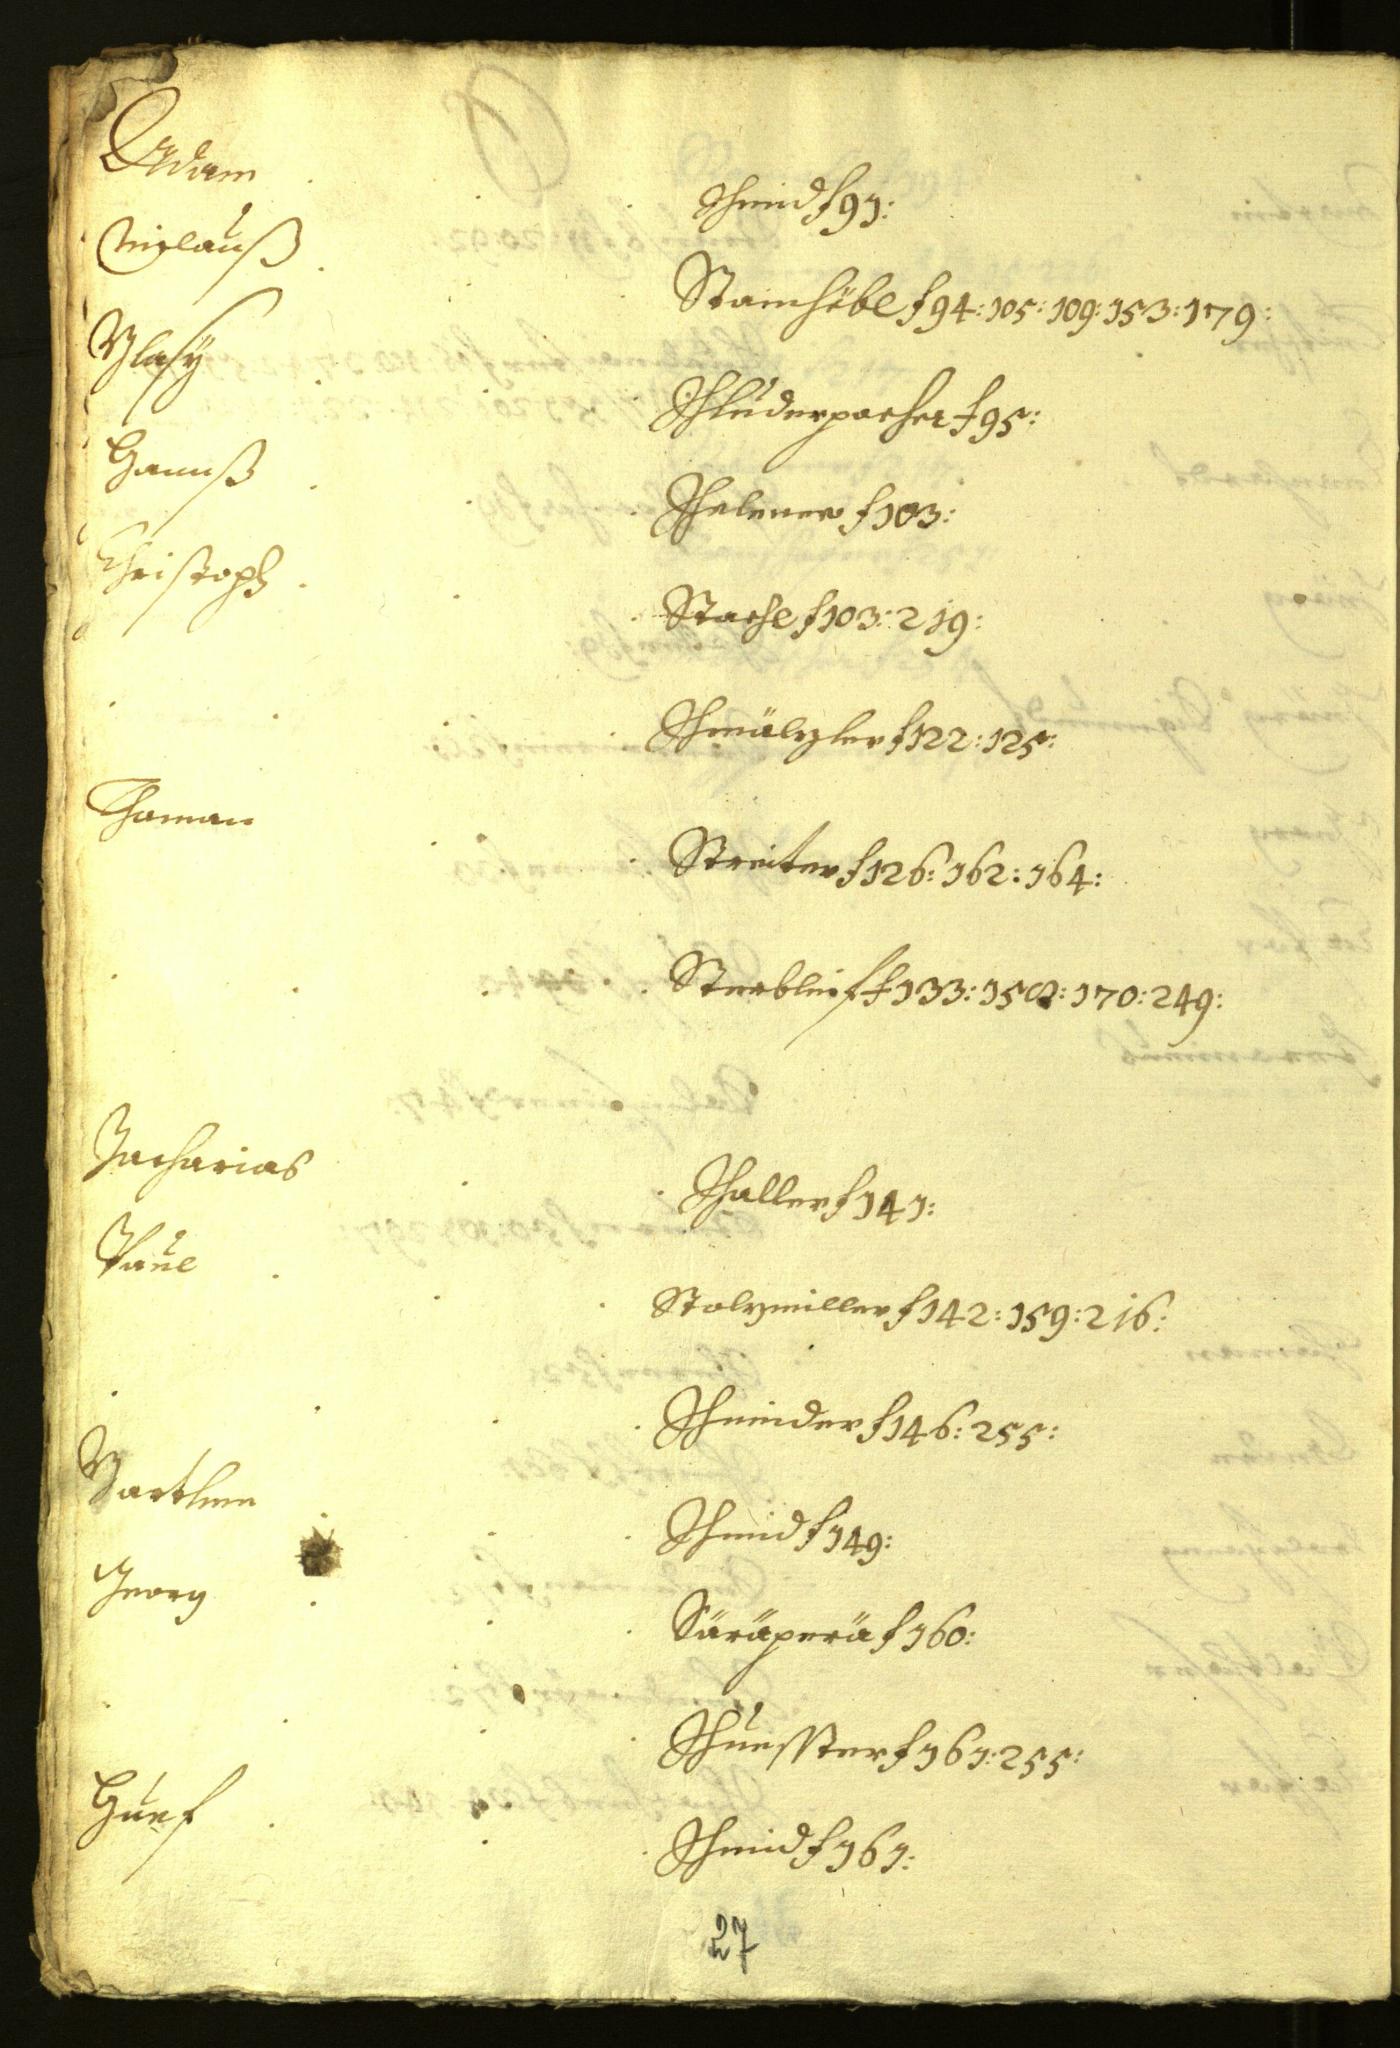 Adam Schmid f 91:
Niclauß Stainhübl f 94: 105: 109: 153: 179:
Blasÿ Schluderpacher f 95:
Hannß Schelener f 103:
Christoph Stachl f 103: 219:
Schmälzler f 122: 125:
Thoman Streiter f 126: 162: 164:
f 133: 158: 170: 249:
Zacharias Schaller f 141:
Paul Stolzmiller f 142: 159: 216:
Schneider f 146: 255:
Barthlme Schmid f 149:
Georg Säräperä f 160:
Schuesster f 161: 255:
Schmid f 161:
27